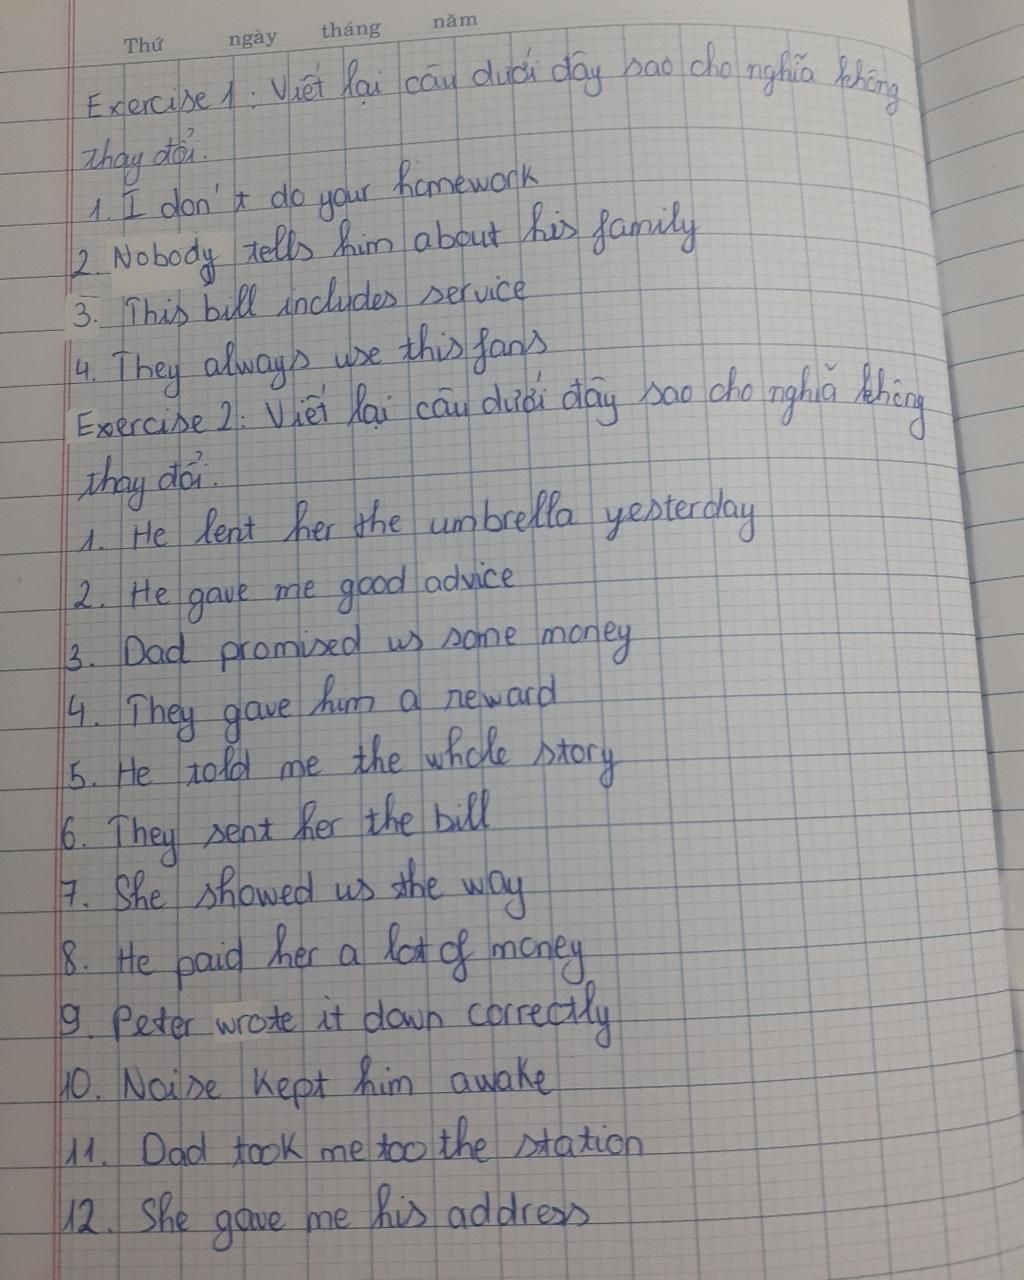 Thứ ngày tháng năm
Exercise 1: Viết lại câu dưới đây sao cho nghĩa không
thay đổi.
1. I don't do your homework
2. Nobody tells him about his family
3. This bill includes service
4. They always use this fans
Exercise 2: Viết lại câu dưới đây sao cho nghĩa không
thay đổi.
1. He lent her the umbrella yesterday
2. He gave me good advice
3. Dad promised us some money
4. They gave him a reward
5. He told me the whole story
6. They sent her the bill
7. She showed us the way
8. He paid her a lot of money
9. Peter wrote it down correctly
10. Noise kept him awake
11. Dad took me too the station
12. She gave me his address